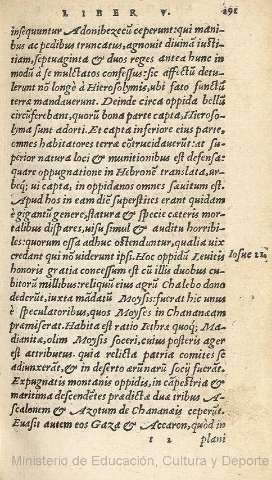 LIBER V. 291
insequuntur Adonibezecũ ceperunt: qui mani
bus ac pedibus truncatus, agnouit diuinã iusti
tiam, septuaginta & duos reges antea hunc in
modũ à se mulctatos confessus: sic affectũ detu
lerunt nõ longè à Hierosolymis, ubi fato functũ
terra mandauerunt. Deinde circa oppida bellũ
circũferebant, quorũ bona parte capta, Hieroso
lyma sunt adorti. Et capta inferiore eius parte,
omnes habitatores terra cõtrucidauerũt: at su
perior natura loci & munitionibus est defensa:
quare oppugnatione in Hebronẽ translata, ur-
beq́; ui capta, in oppidanos omnes sæuitum est.
Apud hos in eam diẽ superstites erant quidam
è gigantũ genere, statura & specie cæteris mor-
talibus dispares, uisu simul & auditu horribi-
les: quorum ossa adhuc ostenduntur, qualia uix
credant qui nõ uiderunt ipsi. Hoc oppidũ Leuitis Iosue 21.
honoris gratia concessum est cũ illis duobus cu-
bitorũ millibus: reliquũ eius agrũ Chalebo dono
dederũt, iuxta mãdatũ Moysis: fuerat hic unus
è speculatoribus, quos Moyses in Chananæam
præmiserat. Habita est ratio Iethræ quoq́; Ma-
dianita, olim Moysis soceri, cuius posteris ager
est attributus. quia relicta patria comites se
adiunxerãt, & in deserto ærumnarũ socij fuerãt.
Expugnatis montanis oppidis, in cãpestria &
maritima descendẽtes prædictæ duæ tribus As-
calonem & Azotum de Chananæis ceperũt.
Euasit autem eos Gaza & Accaron, quòd in
t 2 plani
Ministerio de Educación, Cultura y Deporte